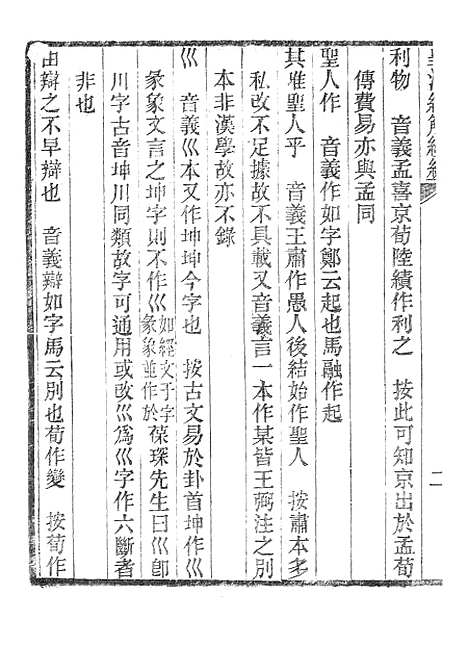 皇清經解續編
二
利物　音義孟喜京荀陸績作利之　按此可知京出於孟荀
傳費易亦與孟同
聖人作　音義作如字鄭云起也馬融作起
其唯聖人乎　音義王肅作愚人後結始作聖人　按肅本多
私改不足據故不具載又音義言一本作某皆王弼注之別
本非漢學故亦不錄
巛　音義巛本又作坤坤今字也　按古文易於卦首坤作巛
彖象文言之坤字則不作巛如經文于字彖象並作於葆琛先生曰巛卽
川字古音坤川同類故字可通用或改巛爲巛字作六斷者
非也
由辯之不早辯也　音義辯如字馬云別也荀作變　按荀作